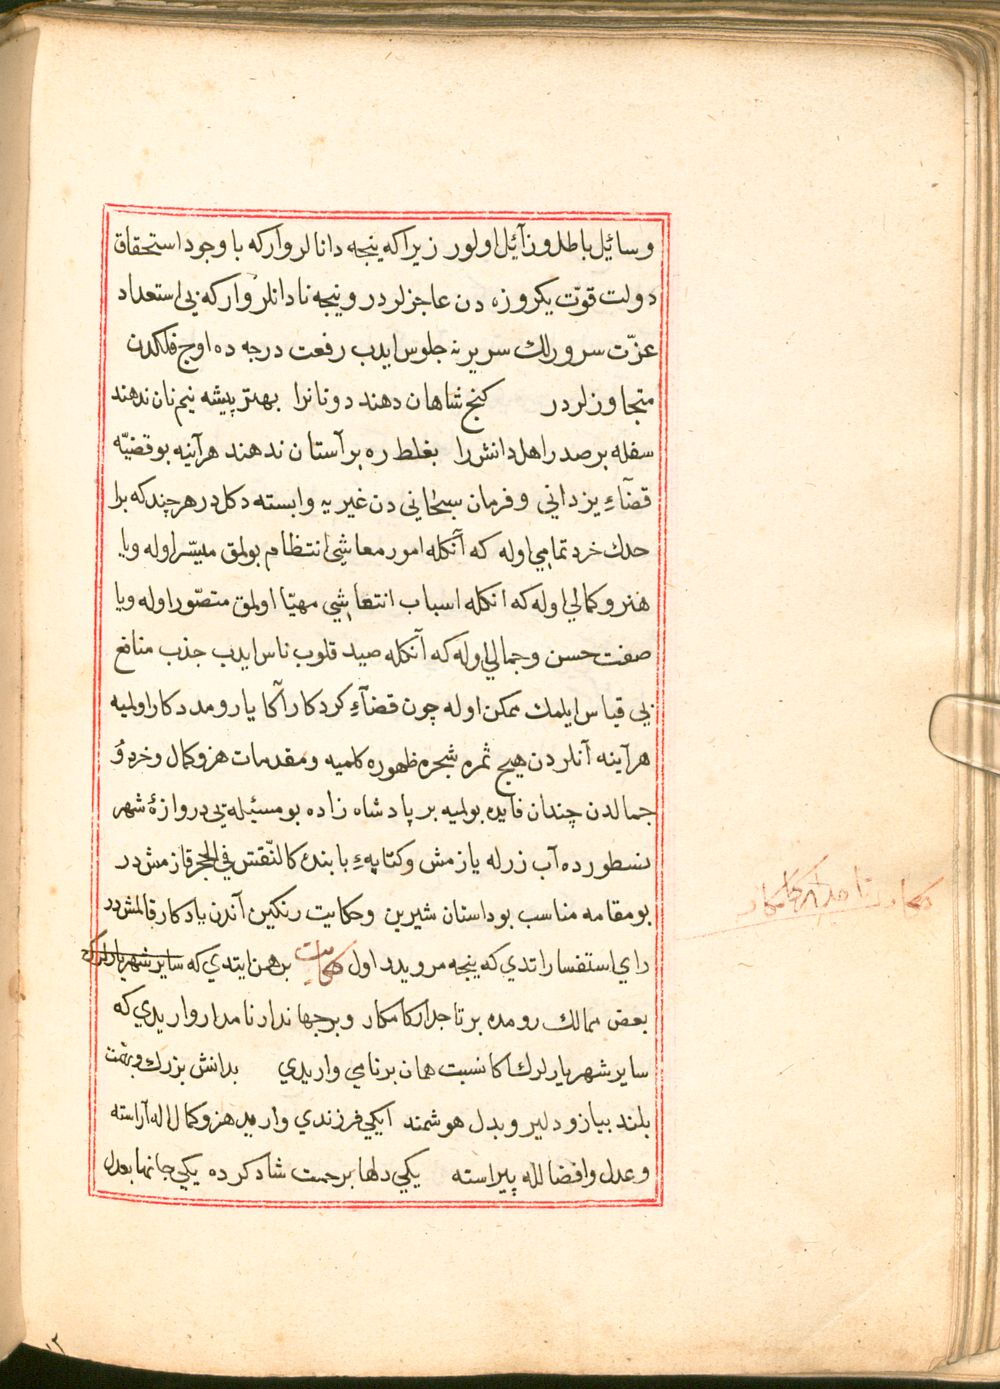 وسائيل باطل و زآئيل اولور زيرا كه ينجه دانالر وار كه با وجود استحقاق
دولت قوّت يكروزه دن عاجزلردر و ينجه نادانلر وار كه بى استعداد
عزّت سرورلك سريرنه جلوس ايدب رفعت درجه ده اوج فلكدن
متجاوزلردر كنج شاهان دهند دونانرا بهنر پيشه نيم نان ندهند
سفله بر صدر اهل دانش را بغلط ره بر آستان ندهند هرآينه بو قضيّه
قضآءِ يزداني و فرمان سبحاني دن غيريه وابسته دكلدر هرچند كه برا
حدك خرد تمامي اوله كه آنكله امور معاشي انتظام بولمق ميسّر اوله ويا
هنر و كمالي اوله كه انكله اسباب انتعاشي مهيّا اولمق متصوّر اوله ويا
صفت حسن و جمالي اوله كه آنكله صيد قلوب ناس ايدب جذب منافع
بي قياس ايلمك ممكن اوله چون قضآءِ كردكار آكا يار و مددكار اولميه
هرآينه آنلردن هيچ ثمره شجره ظهوره كلميه و مقدمات هنر و كمال و خرد و
جمالدن چندان فايده بولميه بر پادشاه زاده بو مسئله يي دروازۀ شهر
نسطورده آب زرله يازمش و كتابه‌ءِ بابنده كالنّقش في الحجر قازمش در
بو مقامه مناسب بو داستان شيرين و حكايت رنكين آندن يادكار قالمش در
راي استفسار اتدي كه ينجه مرويدر اول حكايت برهمن ايتدي كه ساير شهريارلرك
بعض ممالك رومده بر تاجدار كامكار و بر جهاندار نامدار واريدي كه
ساير شهريارلرك اكا نسبت همان بر نامي واريدي بدانش بزرك و بهمت
بلند ببازو دلير و بدل هوشمند ايكي فرزندي واريدي هنر و كمال اله آراسته
و عدل و افضال اله پيراسته يكي دلها برحمت شاد كرده يكي جانها بعدل
تاجدار كامكار
١٢